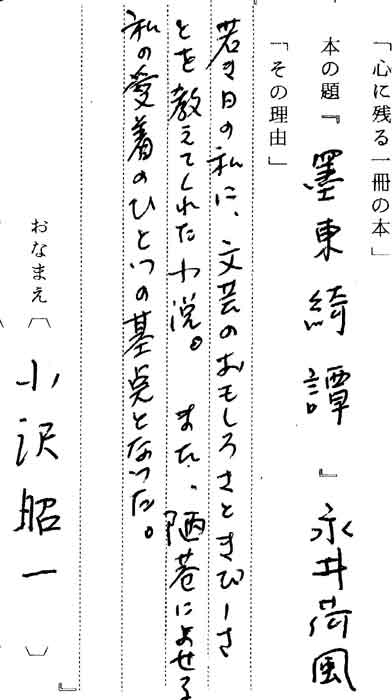 「心に残る一冊の本」
本の題『墨東綺譚』永井荷風
「その理由」
若き日の私に、文芸のおもしろさときびしさ
とを教えてくれた小説。また、陋巷によせる
私の愛着のひとつの基点となった。
おなまえ〔小沢昭一〕
』